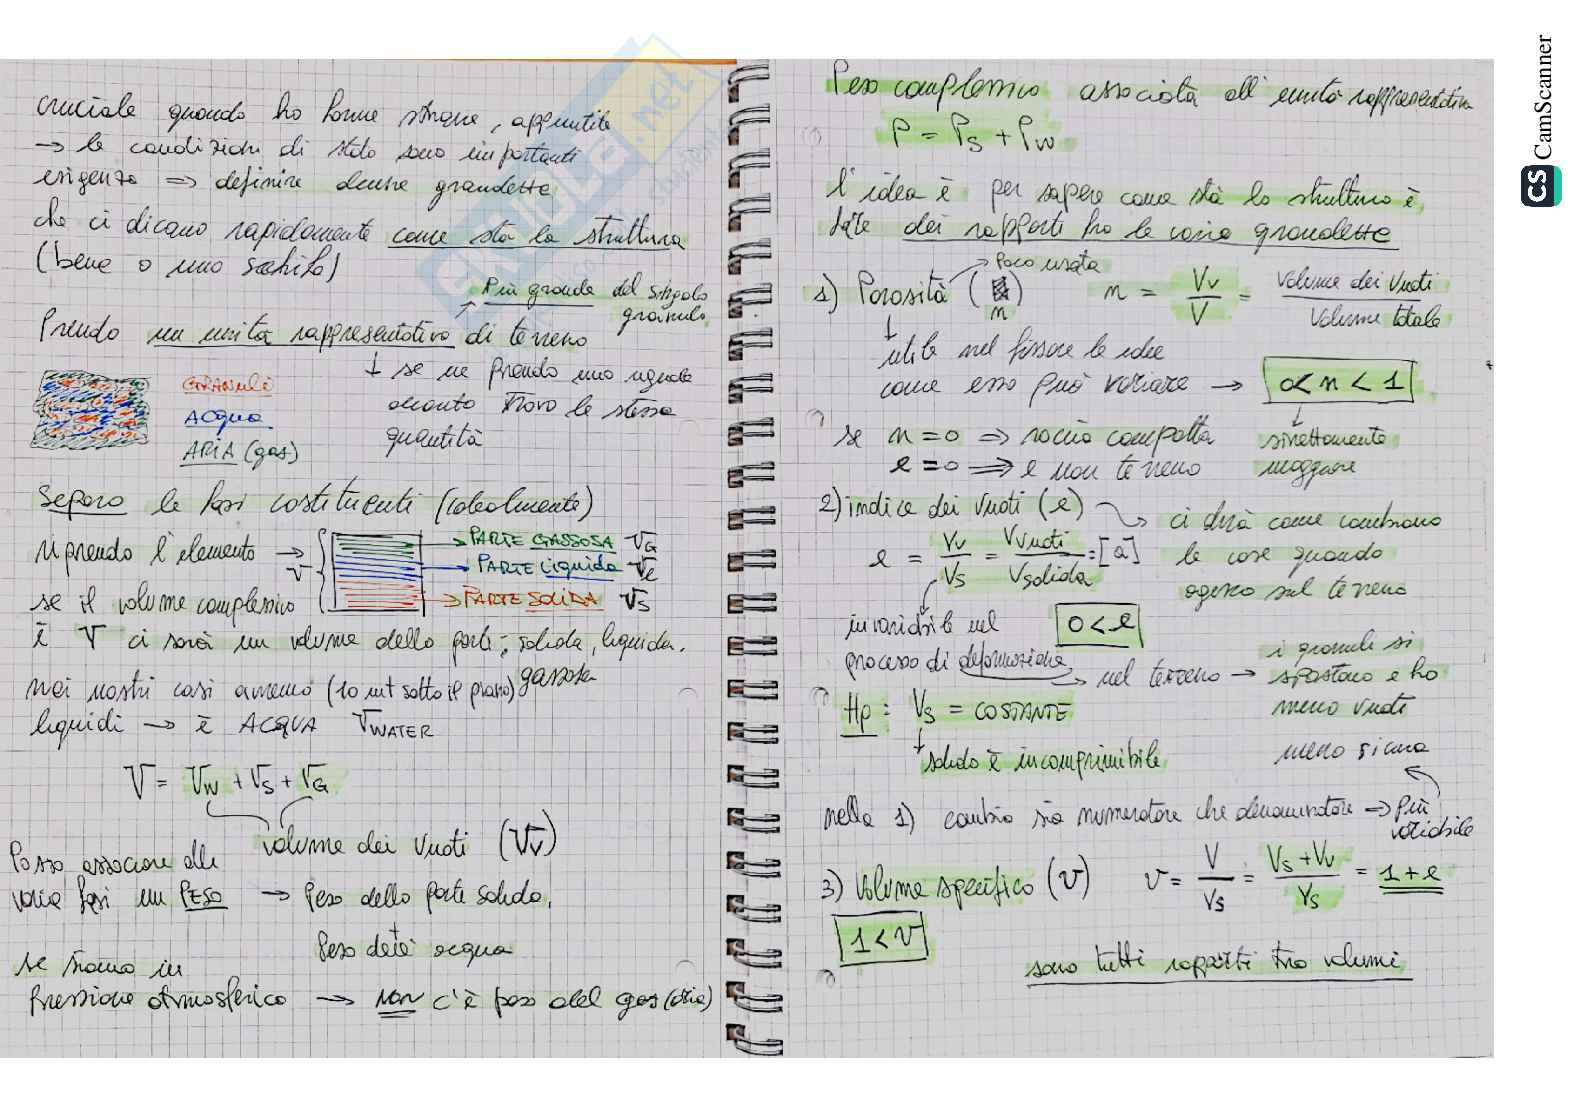 cruciale quando ho forme strane, appuntite
→ le condizioni di stato sono importanti
esigenza ⇒ definire alcune grandezze
che ci dicano rapidamente come sta la struttura
(bene o uno schifo)
Più grande del singolo
granulo
Prendo un unità rappresentativa di terreno
↓ se ne prendo uno uguale
accanto trovo le stesse
quantità
GRANULI
ACQUA
ARIA (gas)
Separo le fasi costituenti (idealmente)
riprendo l'elemento →
V
PARTE GASSOSA VG
PARTE liquida Vl
PARTE SOLIDA VS
se il volume complessivo
è V ci sarà un volume della parte: solida, liquida,
gassosa
nei nostri casi avremo (10 mt sotto il piano)
liquidi → è ACQUA VWATER
V = VW + VS + VG
volume dei vuoti (VV)
Posso associare alle
varie fasi un PESO → Peso della parte solida,
Peso dell'acqua
se siamo in
pressione atmosferica → NON c'è peso del gas (aria)
Peso complessivo associato all'unità rappresentativa
P = PS + PW
l'idea è per sapere come stà la struttura è
fare dei rapporti tra le varie grandezze
poco usata
1) Porosità (n) n = Vv/V = Volume dei Vuoti / Volume totale
↓
utile nel fissare le idee
come esso può variare → 0 < n < 1
se n = 0 ⇒ roccia compatta
strettamente
maggiore
e = 0 ⇒ e non terreno
2) indice dei Vuoti (e)
ci dirà come cambiano
le cose quando
agisco sul terreno
e = Vv/Vs = Vvuoti/Vsolida = [a]
invariabile nel
processo di deformazione
0 < e
nel terreno → i granuli si
spostano e ho
meno vuoti
Hp: VS = COSTANTE
↓
solido è incomprimibile
meno sicura
nella 1) cambia sia numeratore che denominatore ⇒ più
variabile
3) Volume specifico (v) v = V/VS = VS + VV / VS = 1 + e
1 < v
sono tutti rapporti tra volumi
CS CamScanner